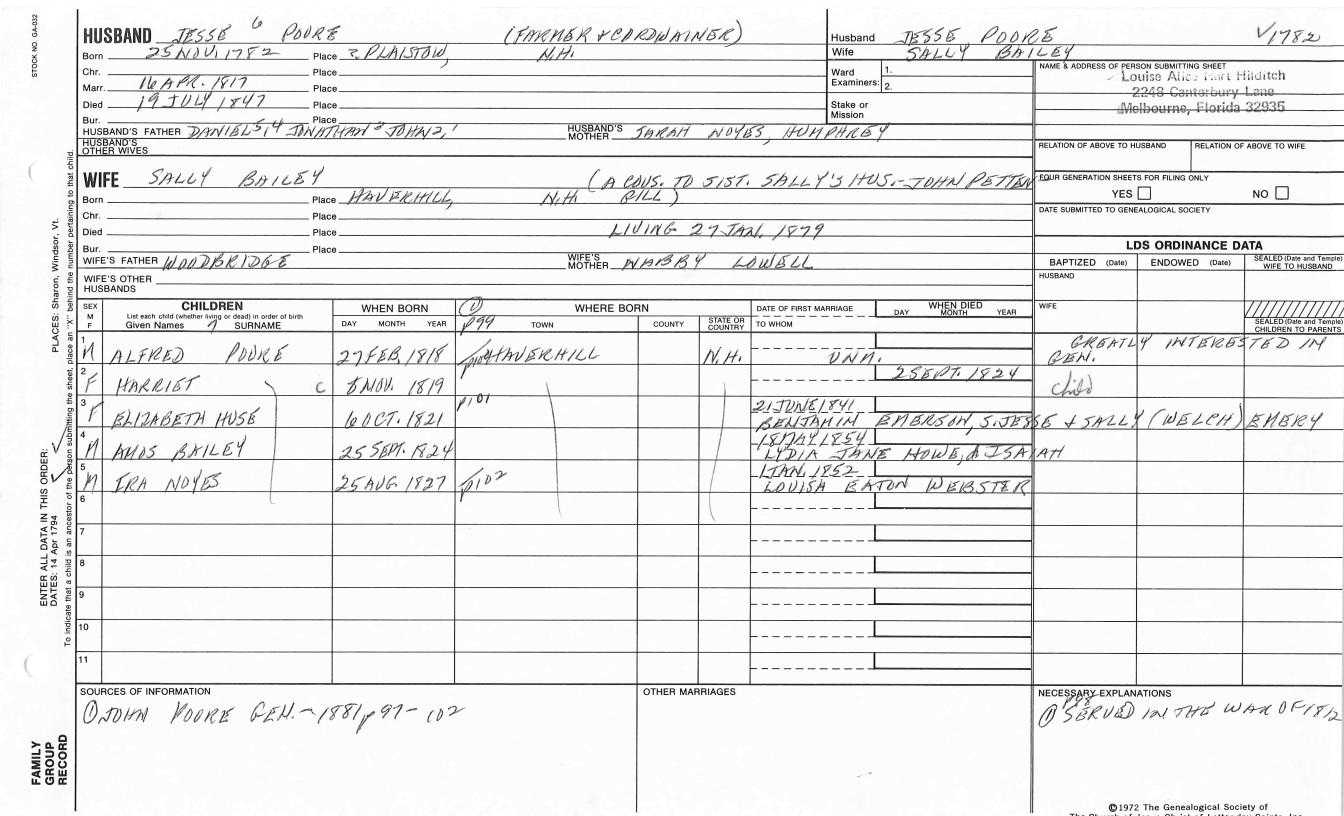 STOCK NO. GA-032
HUSBAND JESSE 6 POORE (FARMER & CORDWAINER)
Born 25 NOV. 1782 Place ? PLAISTOW, N.H.
Chr. Place
Marr. 16 APR. 1817 Place
Died 19 JULY 1847 Place
Bur. Place
HUSBAND'S FATHER DANIEL 5, 4 JONATHAN 3 JOHN 2, 1 HUSBAND'S MOTHER SARAH NOYES, HUMPHREY
HUSBAND'S OTHER WIVES
WIFE SALLY BAILEY (A COUS. TO SIST. SALLY'S HUS.- JOHN PETTEN
Born Place HAVERHILL, N.H. GILL)
Chr. Place
Died Place LIVING 27 JAN. 1879
Bur. Place
WIFE'S FATHER WOODBRIDGE WIFE'S MOTHER NABBY LOWELL
WIFE'S OTHER HUSBANDS
Husband JESSE POORE √1782
Wife SALLY BAILEY
Ward Examiners: 1.
2.
Stake or Mission
NAME & ADDRESS OF PERSON SUBMITTING SHEET
Louise Alice Hart Hilditch
2248 Canterbury Lane
Melbourne, Florida 32935
RELATION OF ABOVE TO HUSBAND RELATION OF ABOVE TO WIFE
FOUR GENERATION SHEETS FOR FILING ONLY
YES NO
DATE SUBMITTED TO GENEALOGICAL SOCIETY
LDS ORDINANCE DATA
BAPTIZED (Date) ENDOWED (Date) SEALED (Date and Temple) WIFE TO HUSBAND
HUSBAND
WIFE
SEALED (Date and Temple) CHILDREN TO PARENTS
SEX M F
CHILDREN
List each child (whether living or dead) in order of birth
Given Names 7 SURNAME
WHEN BORN
DAY MONTH YEAR
① p99
WHERE BORN
TOWN COUNTY STATE OR COUNTRY
DATE OF FIRST MARRIAGE
TO WHOM
WHEN DIED
DAY MONTH YEAR
1 M ALFRED POORE 27 FEB. 1818 HAVERHILL N.H. UNM. GREATLY INTERESTED IN GEN.
2 F HARRIET C 8 NOV. 1819 2 SEPT. 1824 child
3 F ELIZABETH HUSE 6 OCT. 1821 p101 21 JUNE 1841
BENJAMIN EMERSON, S. JESSE & SALLY (WELCH) EMERY
4 M AMOS BAILEY 25 SEPT. 1824 18 MAY 1854
LYDIA JANE HOWE, d ISAIAH
5 M IRA NOYES 25 AUG 1827 p102 1 JAN. 1852
LOUISA EATON WEBSTER
6
7
8
9
10
11
SOURCES OF INFORMATION
① JOHN POORE GEN. - 1881 p 97-102
OTHER MARRIAGES
NECESSARY EXPLANATIONS
p98
① SERVED IN THE WAR OF 1812
©1972 The Genealogical Society of
The Church of Jesus Christ of Latter-day Saints, Inc.
PLACES: Sharon, Windsor, Vt.
ENTER ALL DATA IN THIS ORDER:
DATES: 14 Apr 1794
To indicate that a child is an ancestor of the person submitting the sheet, place an "X" behind the number pertaining to that child.
FAMILY
GROUP
RECORD